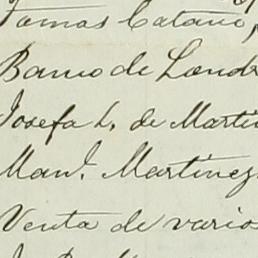 Tomas Catano,
Banco de Londr
Josefa L. de Marti
Man.l Martinez
Venta de vario